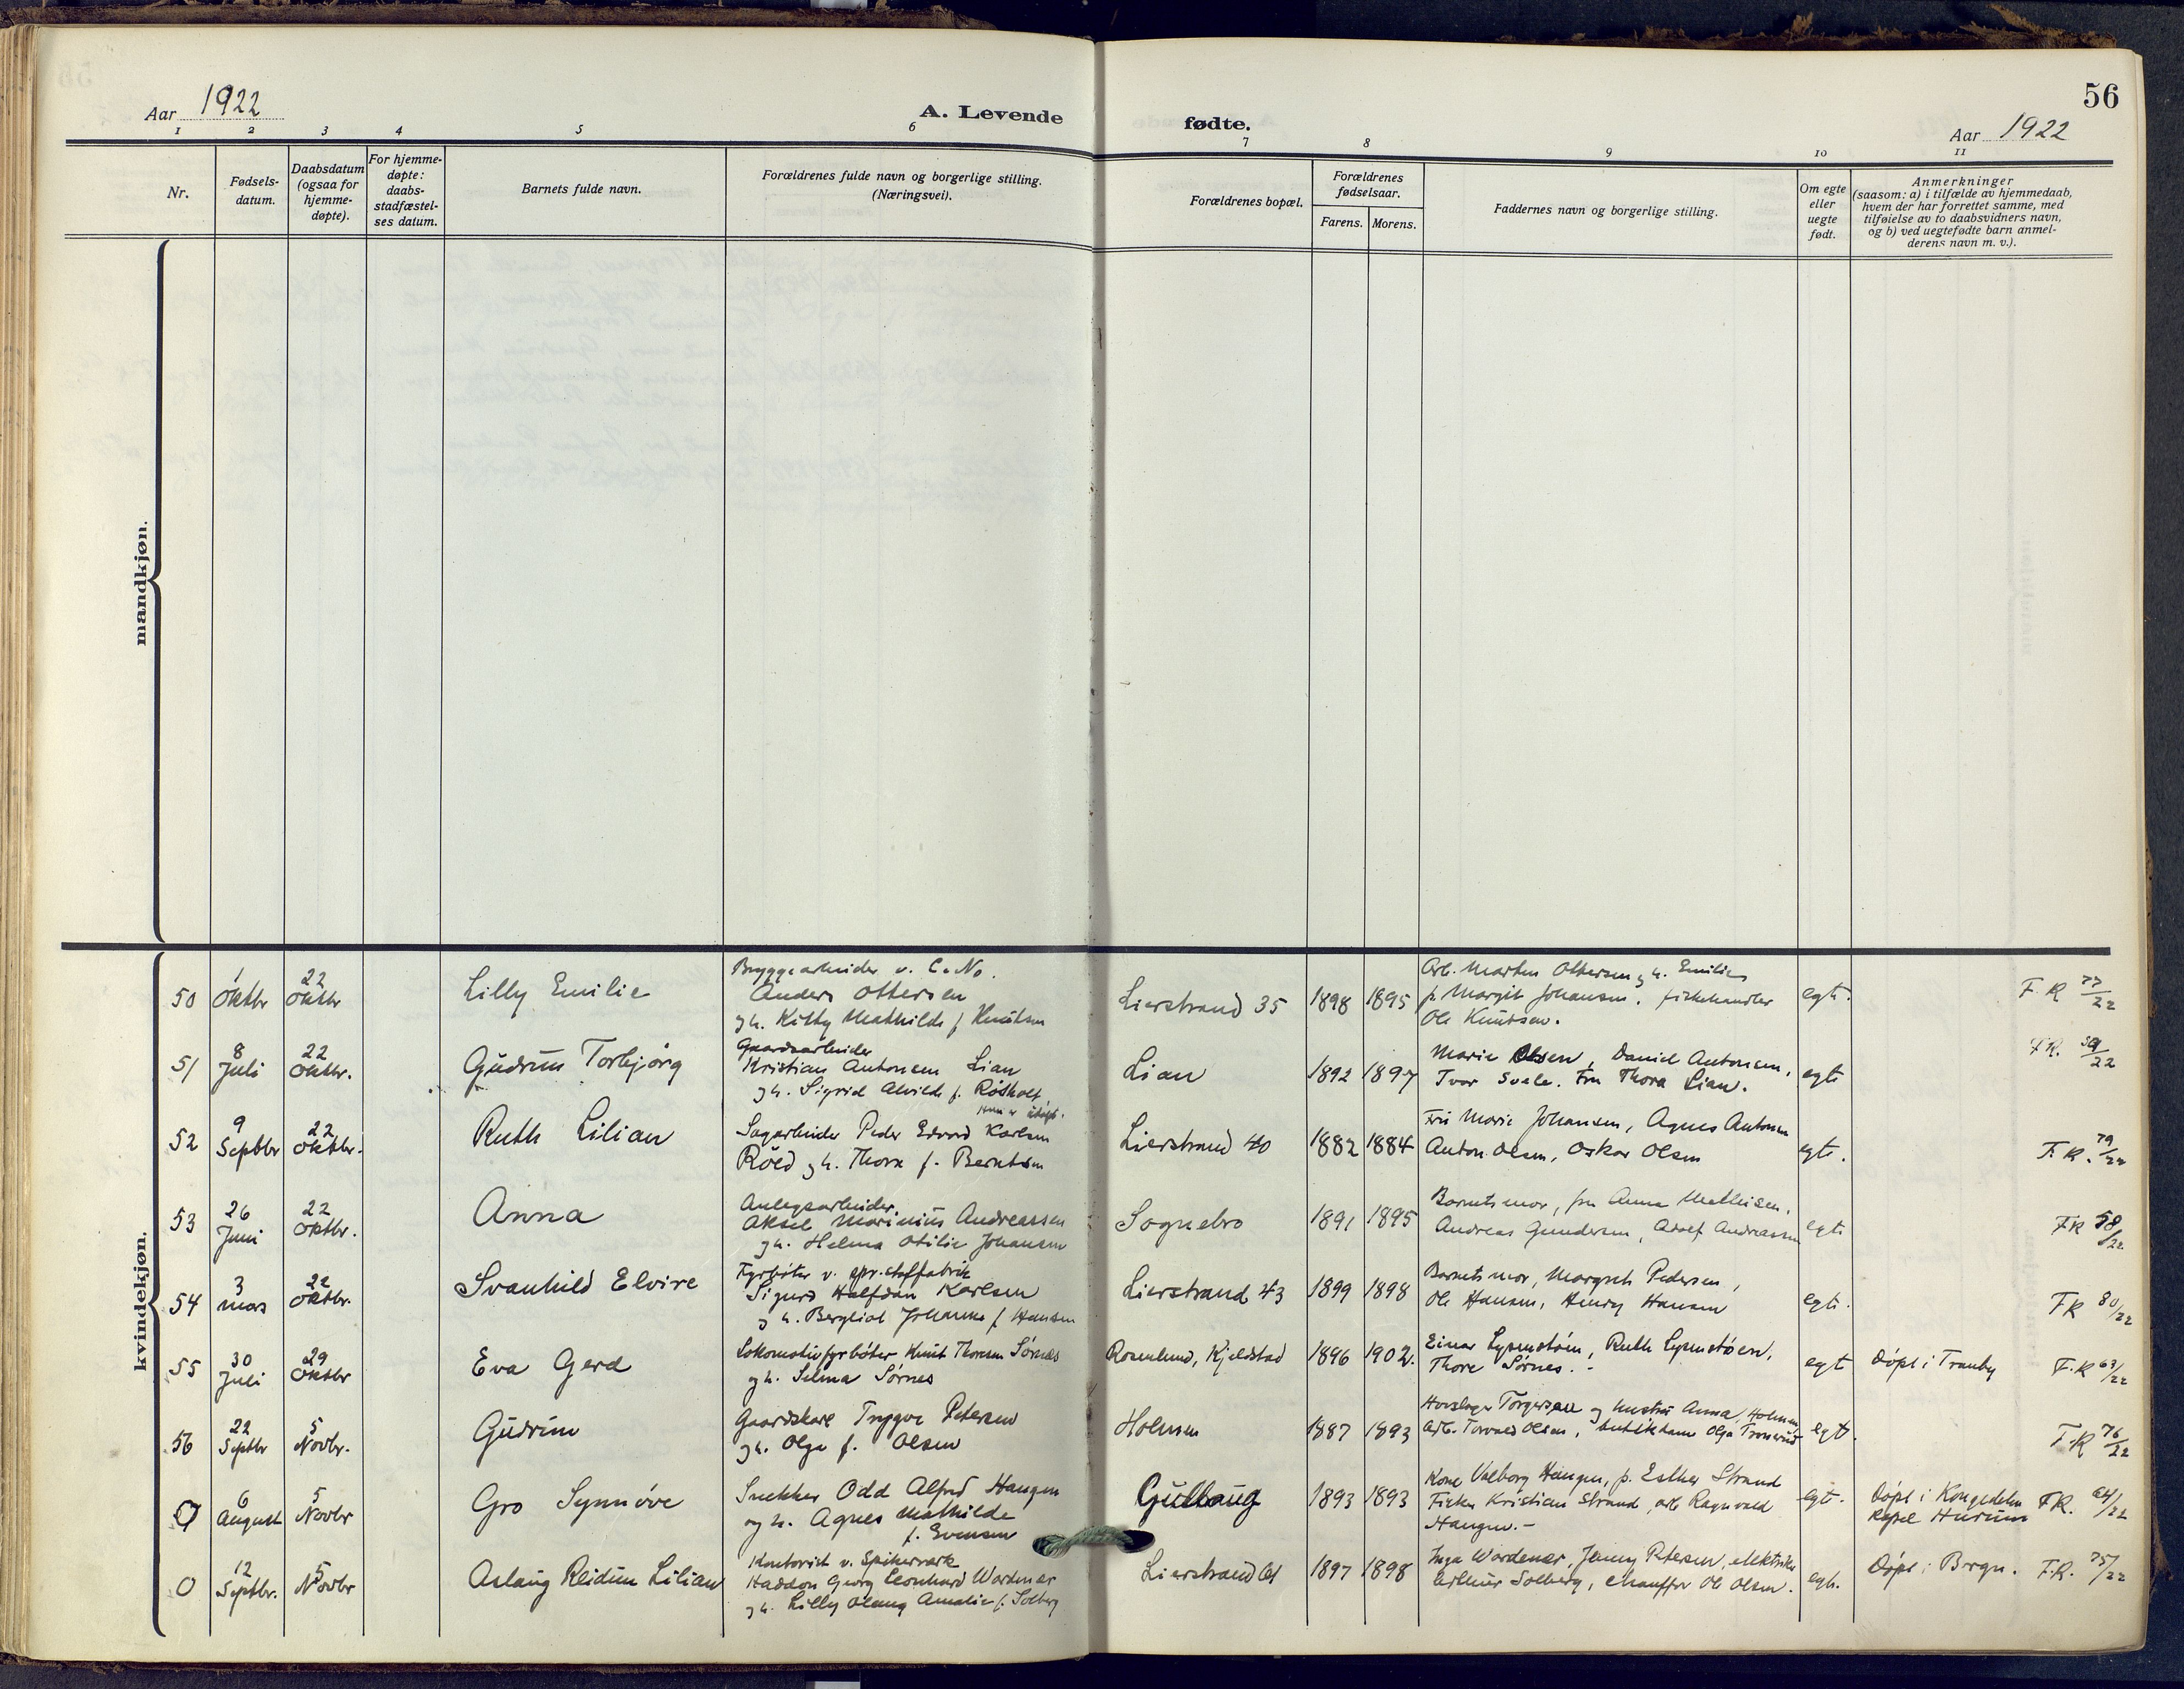 56
Aar 1922
A. Levende fødte.
Aar 1922
1 2 3 4 5 6 7 8 9 10 11
Nr.
Fødsels-
datum.
Daabsdatum
(ogsaa for
hjemme-
døpte).
For hjemme-
døpte:
daabs-
stadfæstel-
ses datum.
Barnets fulde navn.
Forældrenes fulde navn og borgerlige stilling.
(Næringsvei).
Forældrenes bopæl.
Forældrenes
fødselsaar.
Farens. Morens.
Faddernes navn og borgerlige stilling.
Om egte
eller
uegte
født.
Anmerkninger
(saasom: a) i tilfælde av hjemmedaab,
hvem der har forrettet samme, med
tilføielse av to daabsvidners navn,
og b) ved uegtefødte barn anmel-
derens navn m. v.).
mandkjøn.
kvindekjøn.
50
1 Oktbr
22 Oktbr
Lilly Emilie
Bryggearbeider v. C. No.
Anders Ottersen
g h. Kitty Mathilde f Knutsen
Lierstrand 35
1898 1895
Arb. Marten Ottersen g h. Emilie
p. Margit Johansen, fiskehandler
Ole Knutsen.
egte.
F. R 77/22
51
8 Juli
22 Oktbr.
Gudrun Torbjørg
Gaardsarbeider
Kristian Antonsen Lian
g h. Sigrid Alvilde f. Rösholt
Lian
1892 1897
Marie Olsen, Daniel Antonsen,
Ivar Svele. Fru Thora Lian.
egte
FR. /22
52
9 Septbr
22 Oktbr.
Ruth Lilian
Sagarbeider Peder Edvard Karlsen
Röed g h. Thora f. Berntsen
Lierstrand 40
1882 1884
Fru Marie Johansen, Agnes Antonsen
Anton Olsen, Oskar Olsen
egte.
F. R. 79/22
53
26 Juni
22 Oktbr.
Anna
Anlegsarbeider
Aksel Marinius Andreassen
g h. Helma Otilie Johansen
Sognebro
1891 1895
Barnets mor, fru Anna Mathisen,
Andreas Gundersen, Adolf Andreassen
egte
FR 58/22
54
3 mars
22 Oktbr.
Svanhild Elvire
Fyrbøter v. spr.stoffabrik
Sigurd Halfdan Karlsen
g h. Bergliot Johanne f Hansen
Lierstrand 43
1899 1898
Barnets mor, Margreth Pedersen,
Ole Hansen, Henry Hansen
egte.
FR 80/22
55
30 Juli
29 Oktbr
Eva Gerd
Lokomotivfyrbøter Knut Thoresen Sørnes
g h. Selma Sørnes
Rosenlund, Kjeldstad
1896 1902.
Einar Lysenstøen, Ruth Lysenstøen,
Thore Sørnes. -
egt
Døpt i Tranby
F.R 63/22
56
22 Septbr
5 Novbr.
Gudrun
Gaardskarl Trygve Petersen
g h. Olga f. Olsen
Holmen
1887 1893
Torgersen og hustru Anna, Holmen,
Arb. Torvald Olsen, butikdame Olga Tronerud
egt.
F.R 76/22
0
6 August
5 Novbr
Gro Synnöve
Snekker Odd Alfred Haugen
og h. Agnes Mathilde
f. Evensen
Gullaug
1893 1893
Kone Valborg Haugen, p. Esther Strand
Fisker Kristian Strand, arb. Ragnvald
Haugen. -
egt.
Døpt i Kongsdelen
Kapel Hurum
FR. 64/22
0
12 Septbr.
5 Novbr
Aslaug Reidun Lilian
Kontorist v. Spikerverk
Haddon Georg Leonhard Wardenær
g h. Lilly Olaug Amalie f. Solberg
Lierstrand 61
1897 1898
Inga Wardenær, Jenny Petersen, elektriker
Arthur Solberg, chauffør Ole Olsen.
egte.
Døpt i Brgn.
F.R. 75/22